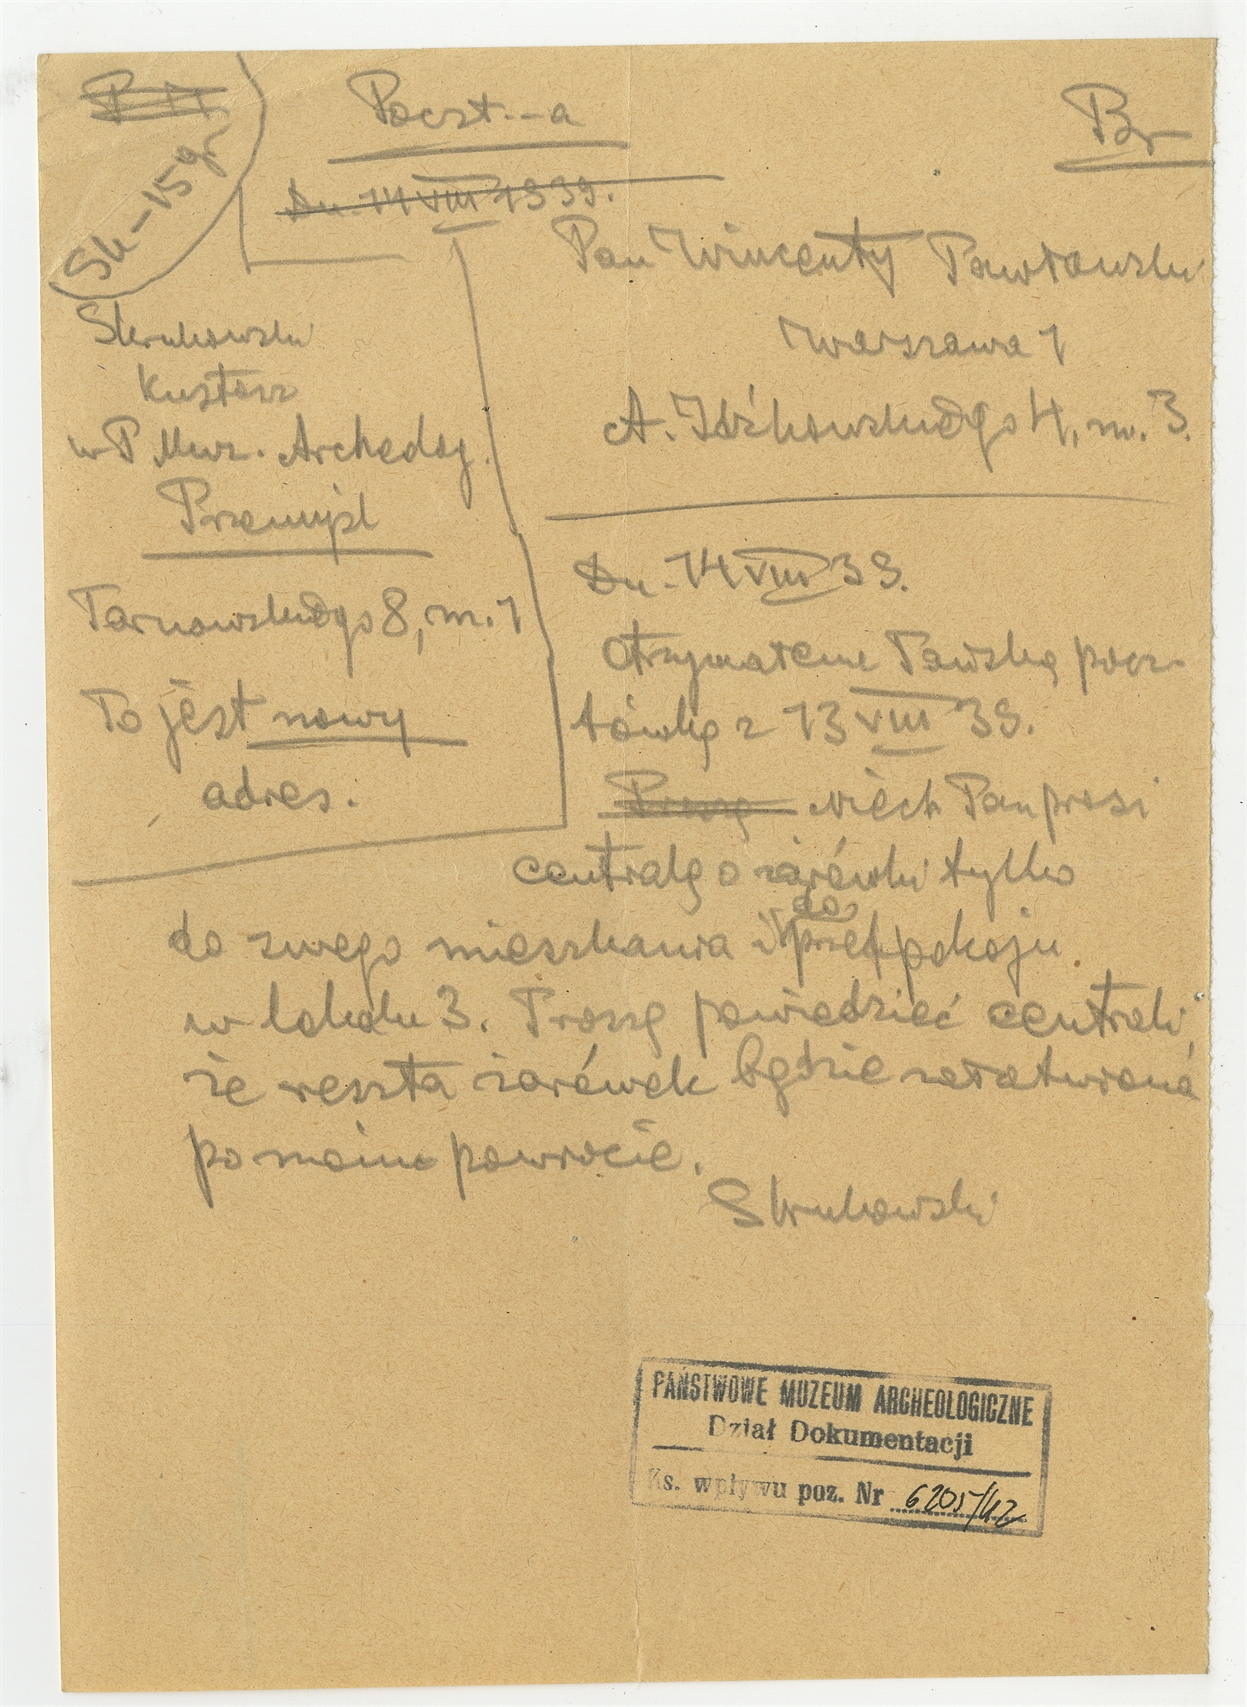 Poczt.-a
Br
Sk-15gr
Dn. 14 VIII 1939.
Skrukowski
Kustosz
w P. Muz. Archeolog.
Przemyśl
Tarnowskiego 8, m. 1
To jest nowy
adres.
Pan Wincenty Pawłowski
Warszawa 1
A. Idźkowskiego 4, m. 3.
Dn. 14 VIII 39.
Otrzymałem Pańską pocz-
tówkę z 13 VIII 39.
Proszę Niech Pan prosi
centralę o żarówki tylko
do swego mieszkania i do przedpokoju
w lokalu 3. Proszę powiedzieć centrali,
że reszta żarówek będzie załatwiona
po moim powrocie.
Skrukowski
PAŃSTWOWE MUZEUM ARCHEOLOGICZNE
Dział Dokumentacji
Ks. wpływu poz. Nr 6205/42